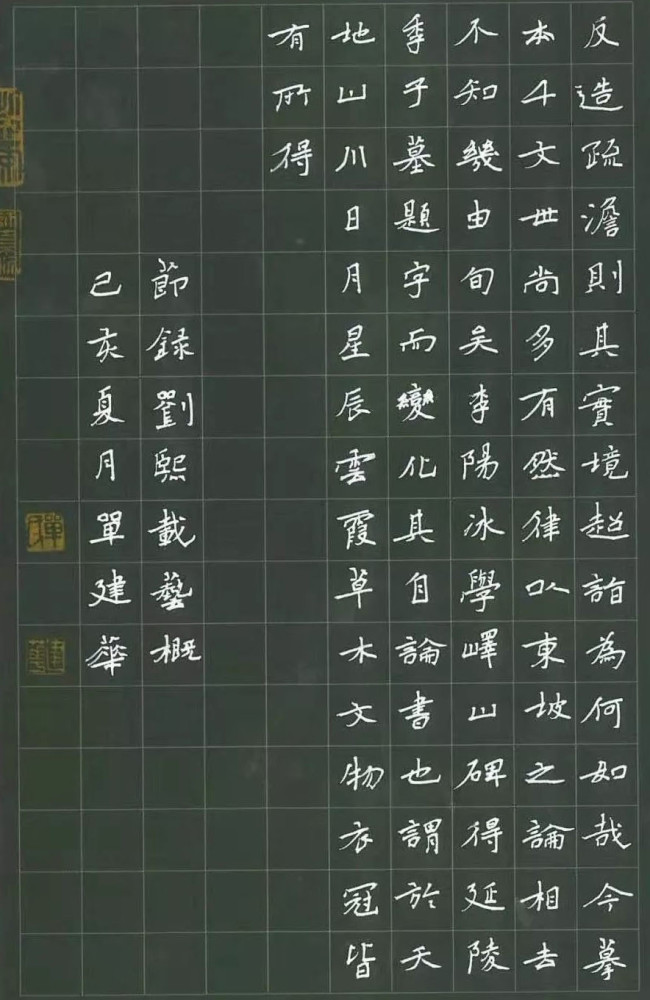 反造疏澹則其實境超詣為何如哉今摹
本千文世尚多有然律以東坡之論相去
不知幾由旬矣李陽冰學嶧山碑得延陵
季子墓題字而變化其自論書也謂於天
地山川日月星辰雲霞草木文物衣冠皆
有所得
節録劉熙載藝概
己亥夏月單建華